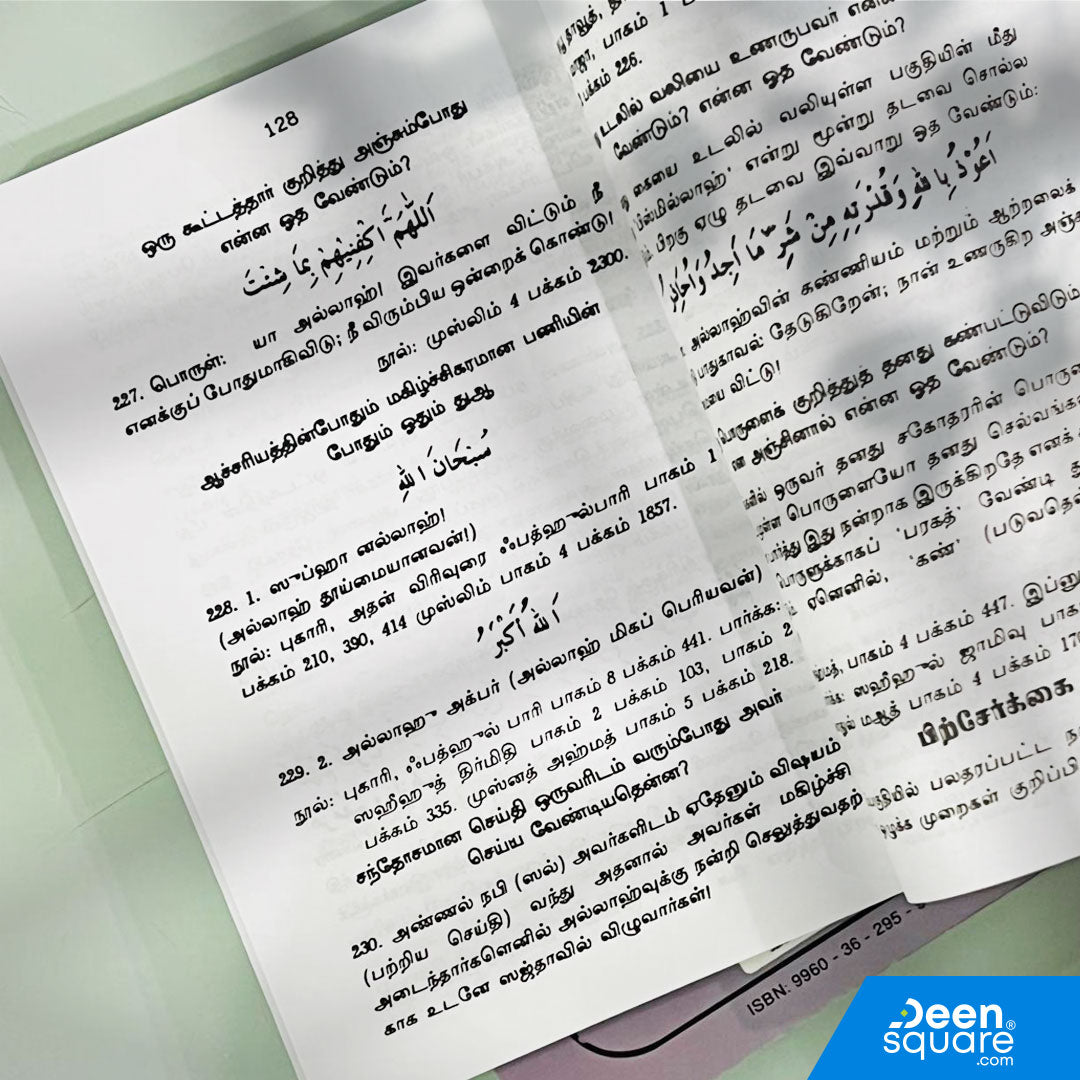 128
ஒரு கூட்டத்தார் குறித்து அஞ்சும்போது
என்ன ஓத வேண்டும்?
اَللّٰهُمَّ اكْفِنِيْهِمْ بِمَا شِئْتَ
227. பொருள்: யா அல்லாஹ்! இவர்களை விட்டும் நீ
எனக்குப் போதுமாகிவிடு; நீ விரும்பிய ஒன்றைக் கொண்டு!
நூல்: முஸ்லிம் 4 பக்கம் 2300.
ஆச்சரியத்தின்போதும் மகிழ்ச்சிகரமான பணியின்
போதும் ஓதும் துஆ
سُبْحَانَ اللهِ
228. 1. ஸுப்ஹா னல்லாஹ்!
(அல்லாஹ் தூய்மையானவன்!)
நூல்: புகாரி, அதன் விரிவுரை ஃபத்ஹுல்பாரி பாகம் 1
பக்கம் 210, 390, 414 முஸ்லிம் பாகம் 4 பக்கம் 1857.
اَللهُ اَكْبَرُ
229. 2. அல்லாஹு அக்பர் (அல்லாஹ் மிகப் பெரியவன்)
நூல்: புகாரி, ஃபத்ஹுல் பாரி பாகம் 8 பக்கம் 441. பார்க்க:
ஸஹீஹுத் திர்மிதி பாகம் 2 பக்கம் 103, பாகம் 2
பக்கம் 335. முஸ்னத் அஹ்மத் பாகம் 5 பக்கம் 218.
சந்தோசமான செய்தி ஒருவரிடம் வரும்போது அவர்
செய்ய வேண்டியதென்ன?
230. அண்ணல் நபி (ஸல்) அவர்களிடம் ஏதேனும் விஷயம்
(பற்றிய செய்தி) வந்து அதனால் அவர்கள் மகிழ்ச்சி
அடைந்தார்களெனில் அல்லாஹ்வுக்கு நன்றி செலுத்துவதற்
காக உடனே ஸஜ்தாவில் விழுவார்கள்!
பாகம் 1
பக்கம் 226.
வலியை உணருபவர்
வேண்டும்? என்ன ஓத வேண்டும்?
கையை உடலில் வலியுள்ள பகுதியின் மீது
என்று மூன்று தடவை சொல்ல
பிறகு ஏழு தடவை இவ்வாறு ஓத வேண்டும்:
اَعُوْذُ بِاللهِ وَقُدْرَتِهِ مِنْ شَرِّ مَا اَجِدُ وَاُحَاذِرُ
அல்லாஹ்வின் கண்ணியம் மற்றும் ஆற்றலைக்
பாதுகாவல் தேடுகிறேன்; நான் உணருகிற
விட்டு!
குறித்துத் தனது கண்பட்டுவிடும்
அஞ்சினால் என்ன ஓத வேண்டும்?
ஒருவர் தனது சகோதரரின்
பொருளையோ தனது
இது நன்றாக இருக்கிறதே எனக்
'பரகத்' வேண்டி
ஏனெனில், 'கண்'
பாகம் 4 பக்கம் 447.
ஸஹீஹுல் ஜாமிவு
பாகம் 4 பக்கம்
பிற்சேர்க்கை
பலதரப்பட்ட
முறைகள்
ISBN: 9960 - 36 - 295 -
Deen
square®
.com